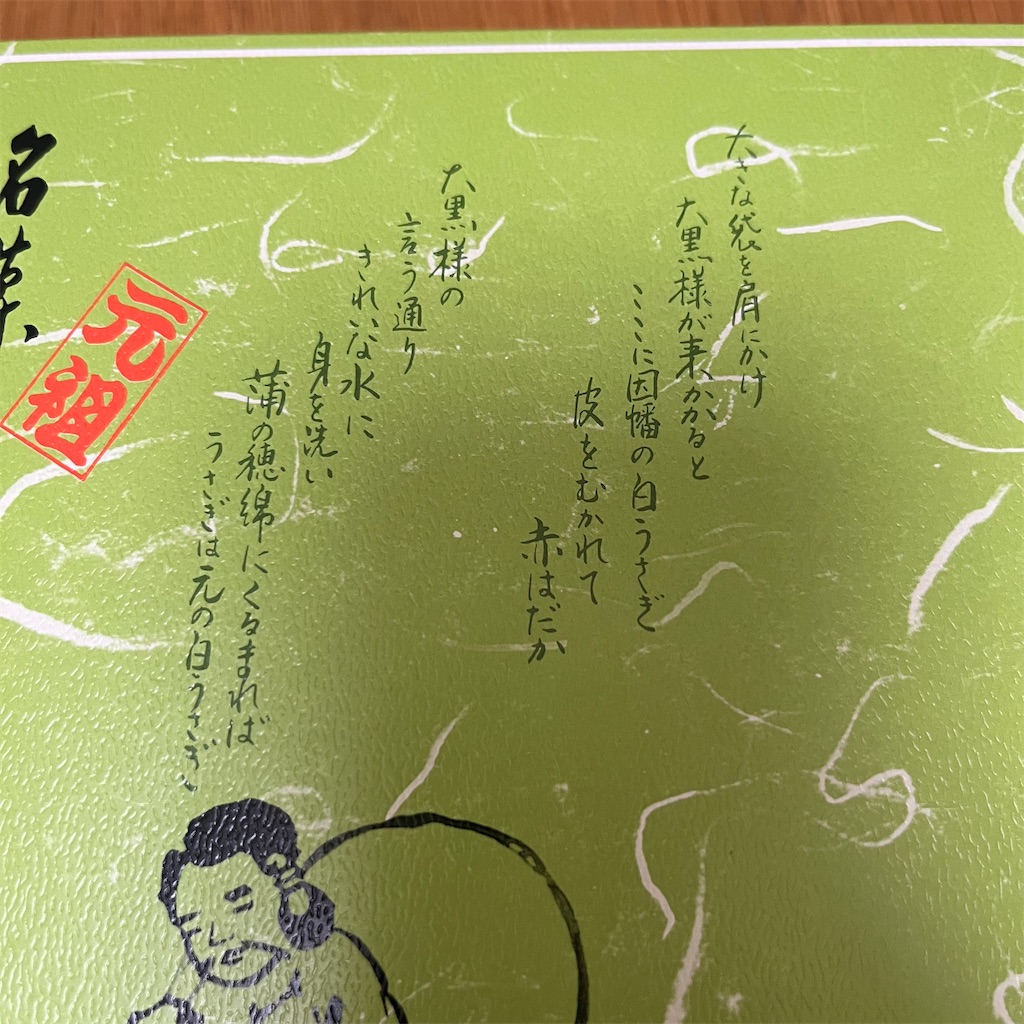 大きな袋を肩にかけ
大黒様が来かかると
ここに因幡の白うさぎ
皮をむかれて
赤はだか
大黒様の
言う通り
きれいな水に
身を洗い
蒲の穂綿にくるまれば
うさぎは元の白うさぎ
元祖
名菓